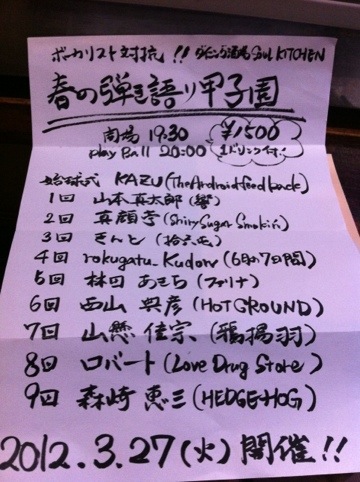 ボーカリスト対抗!! ダイニング酒場 Soul KITCHEN
春の弾き語り甲子園
開場 19:30 ¥1500
play Ball 20:00 1ドリンク付
始球式 KAZU (TheAndroidfeedback)
1回 山本真太郎 (響)
2回 真顔孝 (Shiny Sugar Smokin)
3回 きんと
4回 rokugatu_Kudory (6日の7日間)
5回 林田あきら (ファリナ)
6回 西山典彦 (HOTGROUND)
7回 山懸佳宗 (鴉揚羽)
8回 ロバート (Love Drug Store)
9回 森崎恵三 (HEDGEHOG)
2012.3.27(火)開催!!